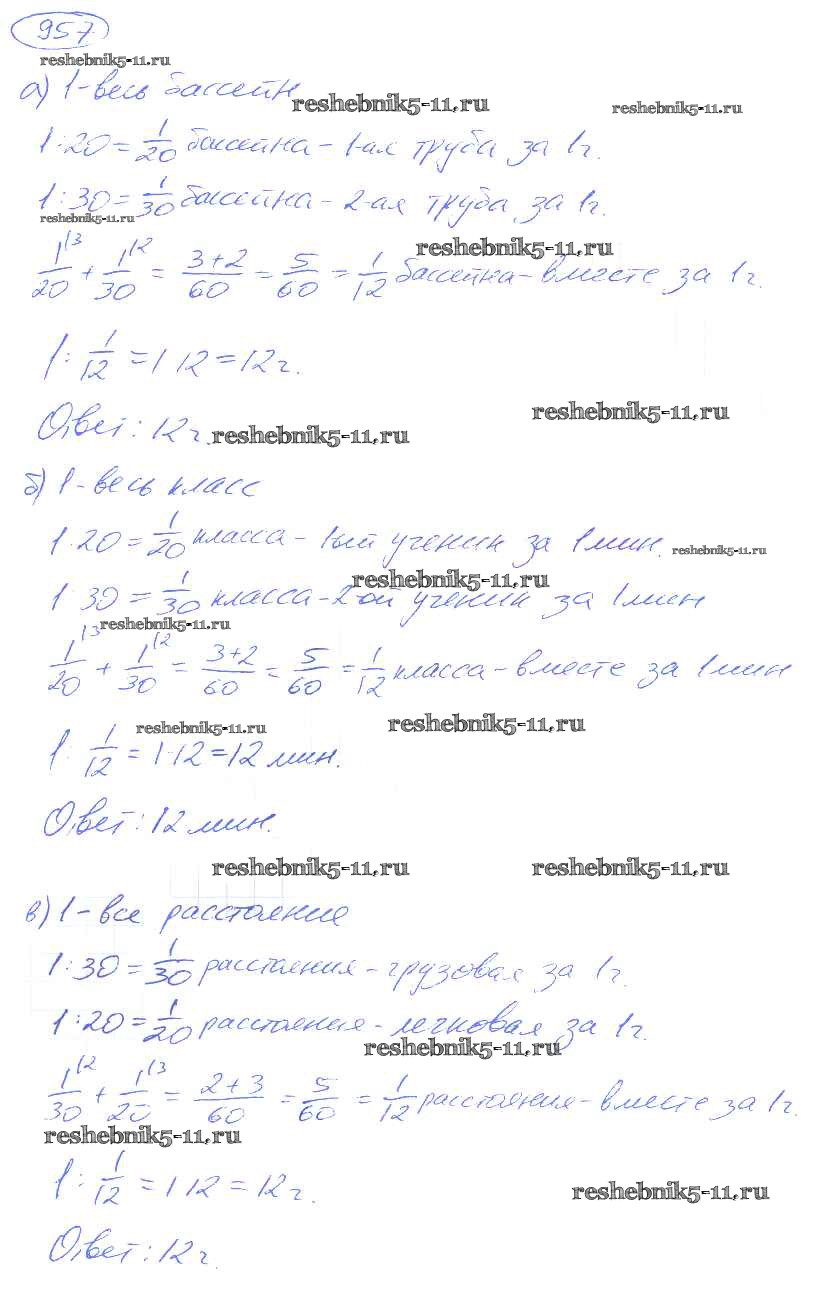 957
reshebnik5-11.ru
а) 1-весь бассейн
reshebnik5-11.ru
reshebnik5-11.ru
1:20 = 1/20 бассейна - 1-ая труба за 1г.
1:30 = 1/30 бассейна - 2-ая труба за 1г.
reshebnik5-11.ru
reshebnik5-11.ru
1/20 |3 + 1/30 |2 = 3+2/60 = 5/60 = 1/12 бассейна - вместе за 1г.
1 : 1/12 = 1 12 = 12 г.
reshebnik5-11.ru
Ответ: 12 г.
reshebnik5-11.ru
б) 1-весь класс
1:20 = 1/20 класса - 1ый ученик за 1 мин.
reshebnik5-11.ru
reshebnik5-11.ru
1:30 = 1/30 класса - 2ой ученик за 1 мин
reshebnik5-11.ru
1/20 |3 + 1/30 |2 = 3+2/60 = 5/60 = 1/12 класса - вместе за 1 мин
reshebnik5-11.ru
reshebnik5-11.ru
1 : 1/12 = 1·12 = 12 мин.
Ответ: 12 мин.
reshebnik5-11.ru
reshebnik5-11.ru
в) 1 - все расстояние
1:30 = 1/30 расстояния - грузовая за 1г.
1:20 = 1/20 расстояния - легковая за 1г.
reshebnik5-11.ru
1/30 |2 + 1/20 |3 = 2+3/60 = 5/60 = 1/12 расстояния - вместе за 1г.
reshebnik5-11.ru
1 : 1/12 = 1 12 = 12 г.
reshebnik5-11.ru
Ответ: 12 г.